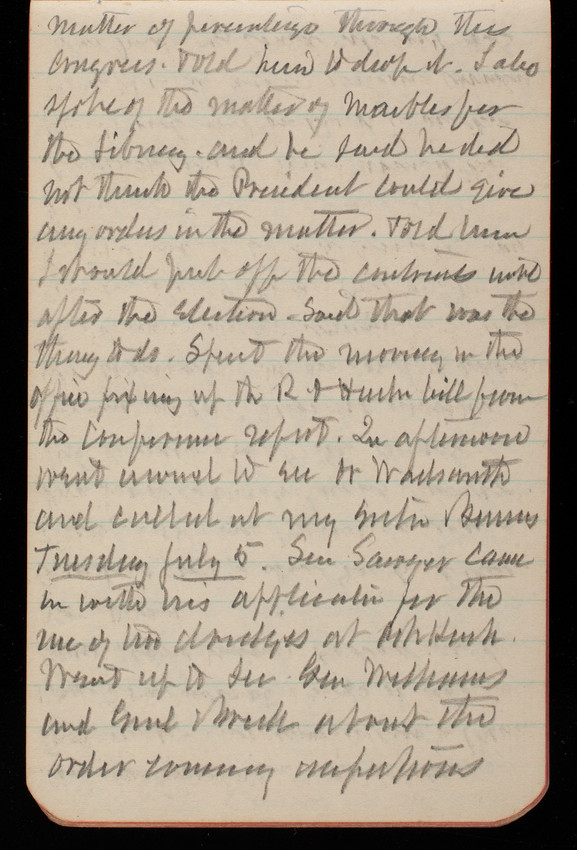 matter of percentage through this
Congress. Told him to drop it. I also
spoke of the matter of marbles for
the Library. and he said he did
not think the President could give
any orders in the matter. Told him
I should put off the contracts until
after the Election. Said that was the
thing to do. Spent the morning in the
office fixing up the R & Harbor bill from
the Conference report. In afternoon
went around to see Dr Wadsworth
and called at my
Tuesday July 5. Sen Sawyer came
in with his application for the
use of two dredges at Oshkosh.
Went up to see Gen Williams
and Genl about the
order